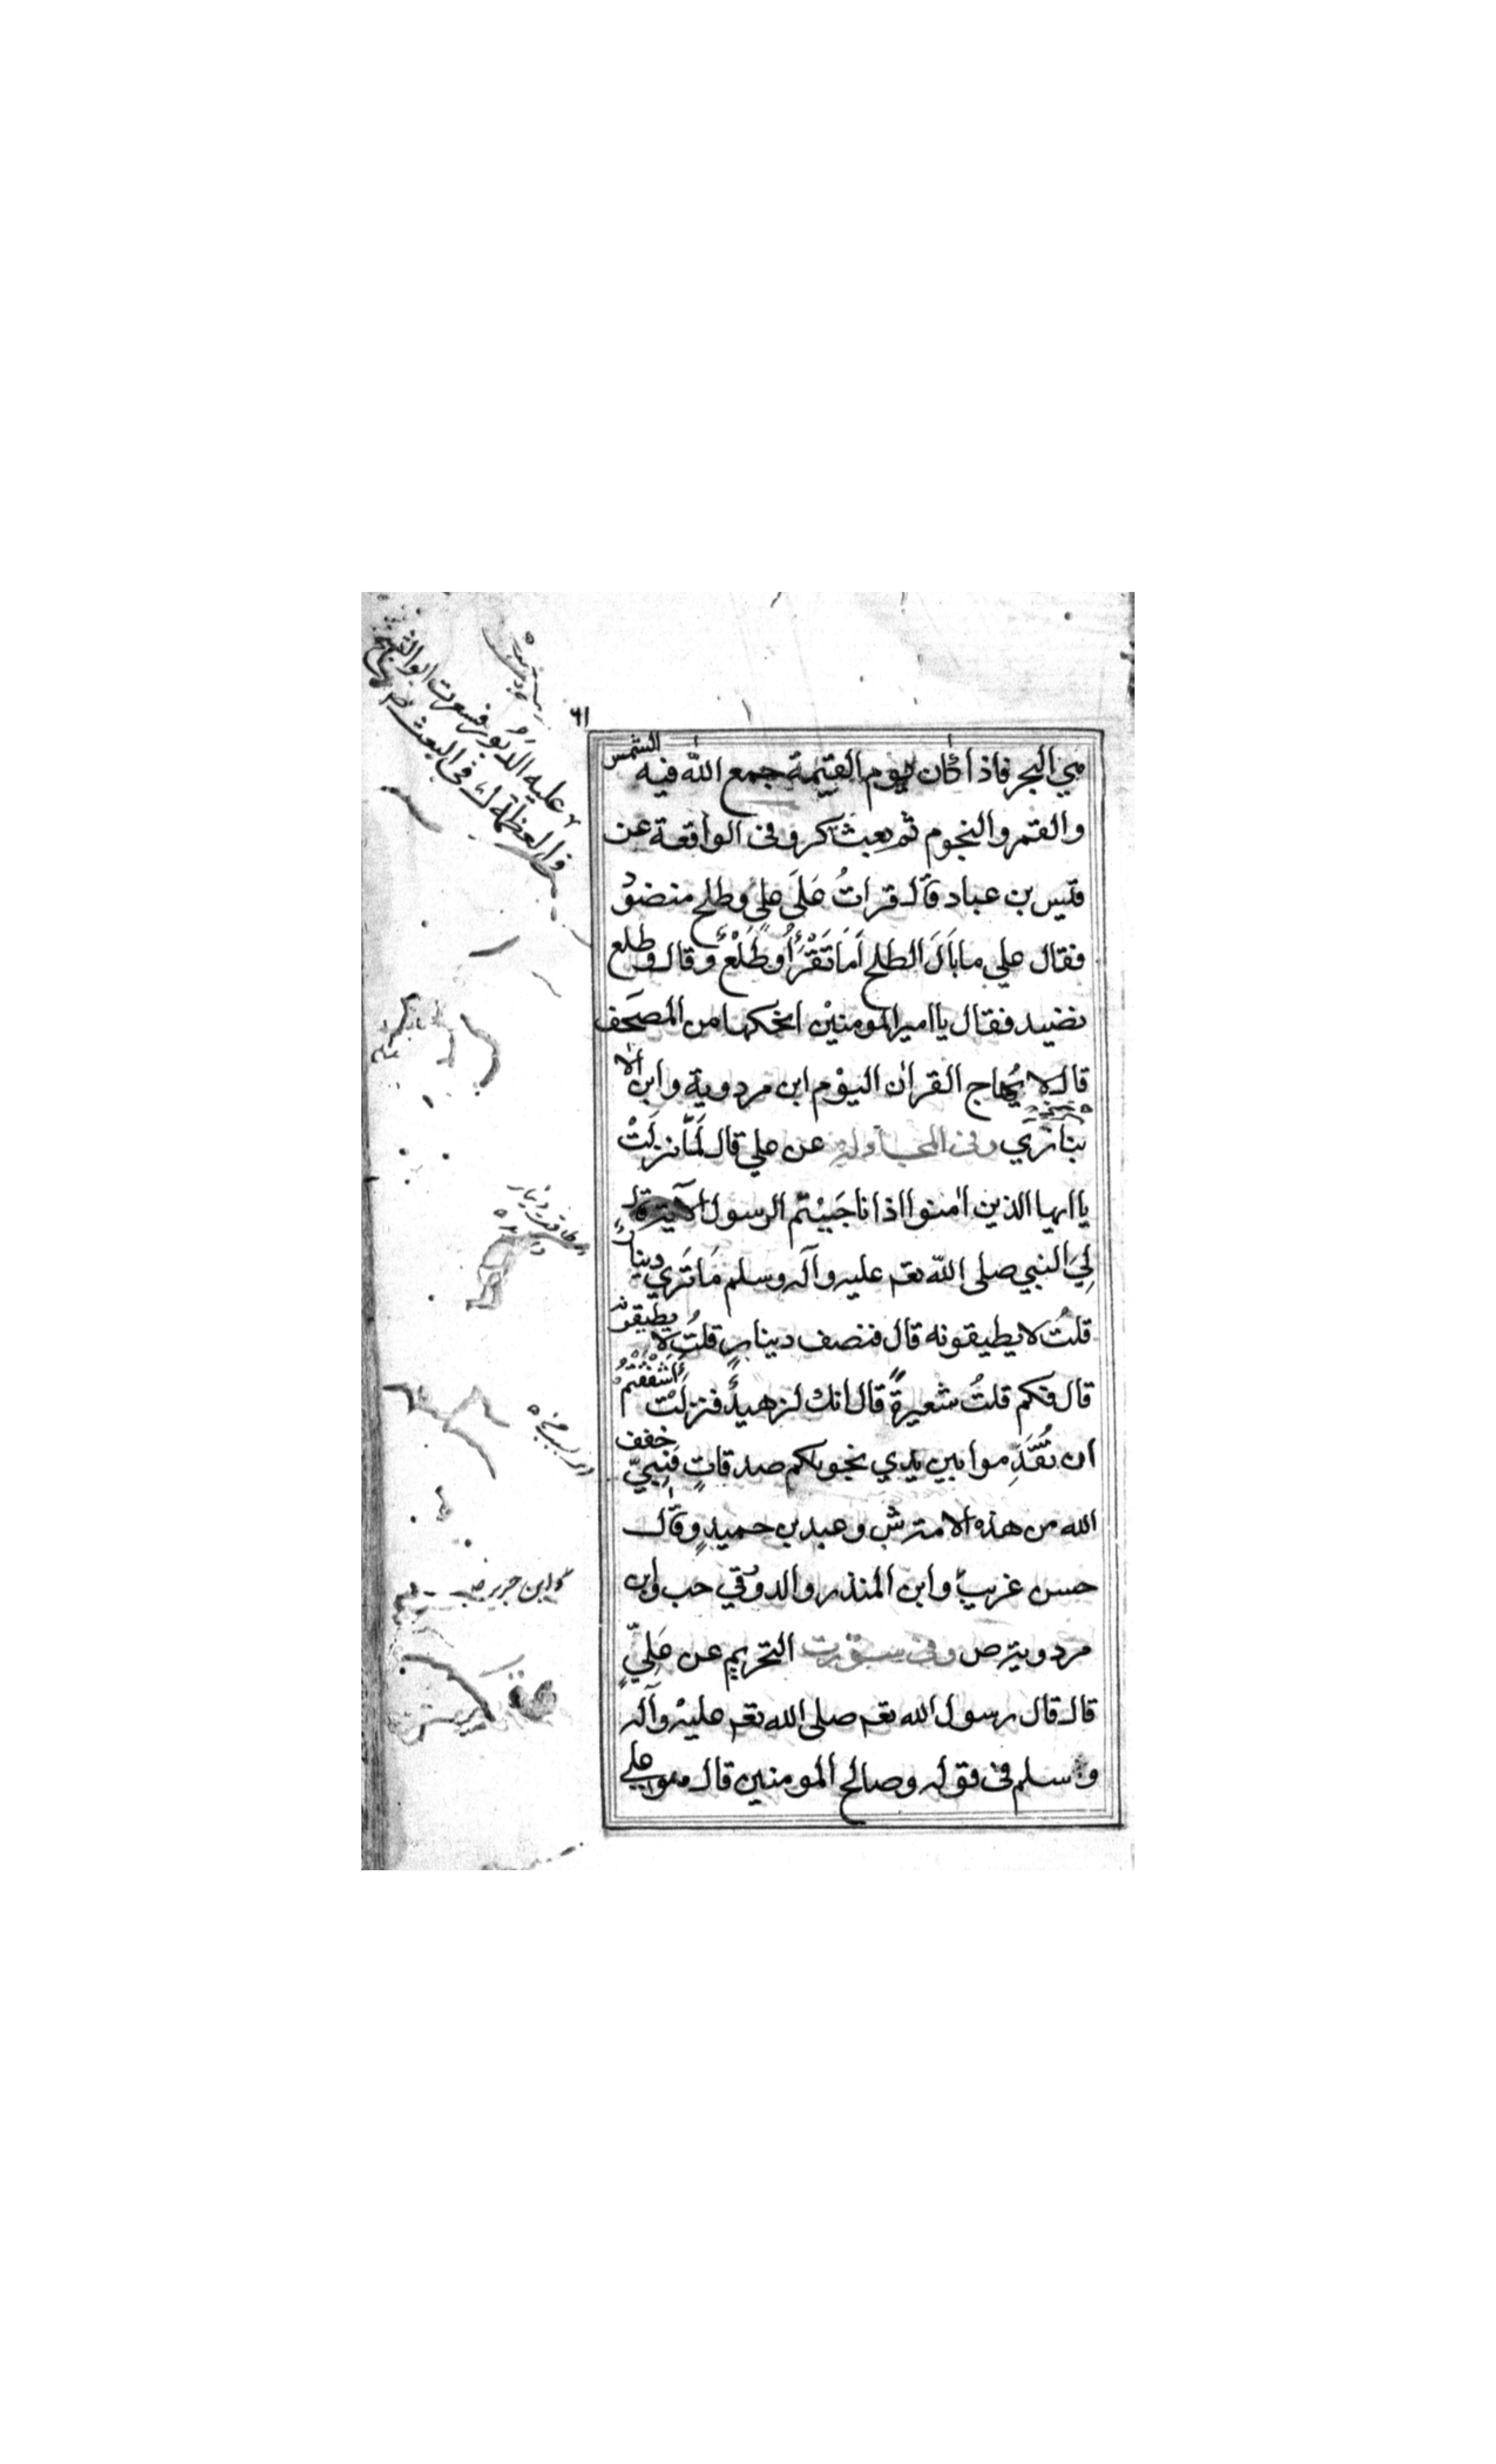 ٦١
في البحر فاذا كان يوم القيٰمة جمع الله فيه الشمس
والقمر والنجوم ثم يبعث كر وفى الواقعة عن
قيس بن عباد قال قراتُ عَلَى عليٍ وطلح منضوْدٍ
فقال علي ما بَالَ الطلح اَمَا تَقْرَأُ وطَلْعٍ وقال وطلع
نضيد فقال يا امير المومنيْن انحكها من المصحَف
قال لا يُهاج القراٰن اليوْم ابن مردوية وابن الا
نبارَي وفى المجادلة عن علي قال لَمَّا نزلَتْ
يا ايها الذين اٰمنوا اذا ناجَيْتم الرسول الآية قال
لِيَ النبي صلى الله تعم عليه وآله وسلم مَا تَرَي دينارً
قلتُ لا يطيقونه قال فنصف دينارٍ قلتُ لا يطيقونه
قال فكم قلتُ شعيرةً قال انك لزهيدٌ فنزلَتْ ءَاَشْفَقْتُمْ
ان تُقَدِّموا بين يدي نجوىكم صدقاتٍ فَبِيّ خفف
الله من هذه الامة ش وعبد بن حميدٍ وقال
حسن غريبٌ وابن المنذر والدورقي حب وابن
مردوية ص وفى سورت التحريم عن عَلِيٍّ
قال قال رسول الله تعم صلى الله تعم عليْه وآله
وسلم فى قوله وصالح المومنين قال هو علي
عليه الدَبُوْر فسعرت ابو الشيخ
في العظمة ك فى البعث
وابن جرير